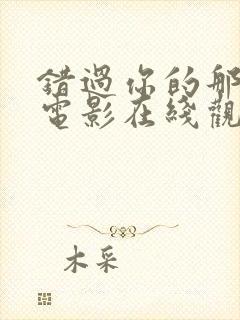 錯過你的那
電影在綫觀
木采